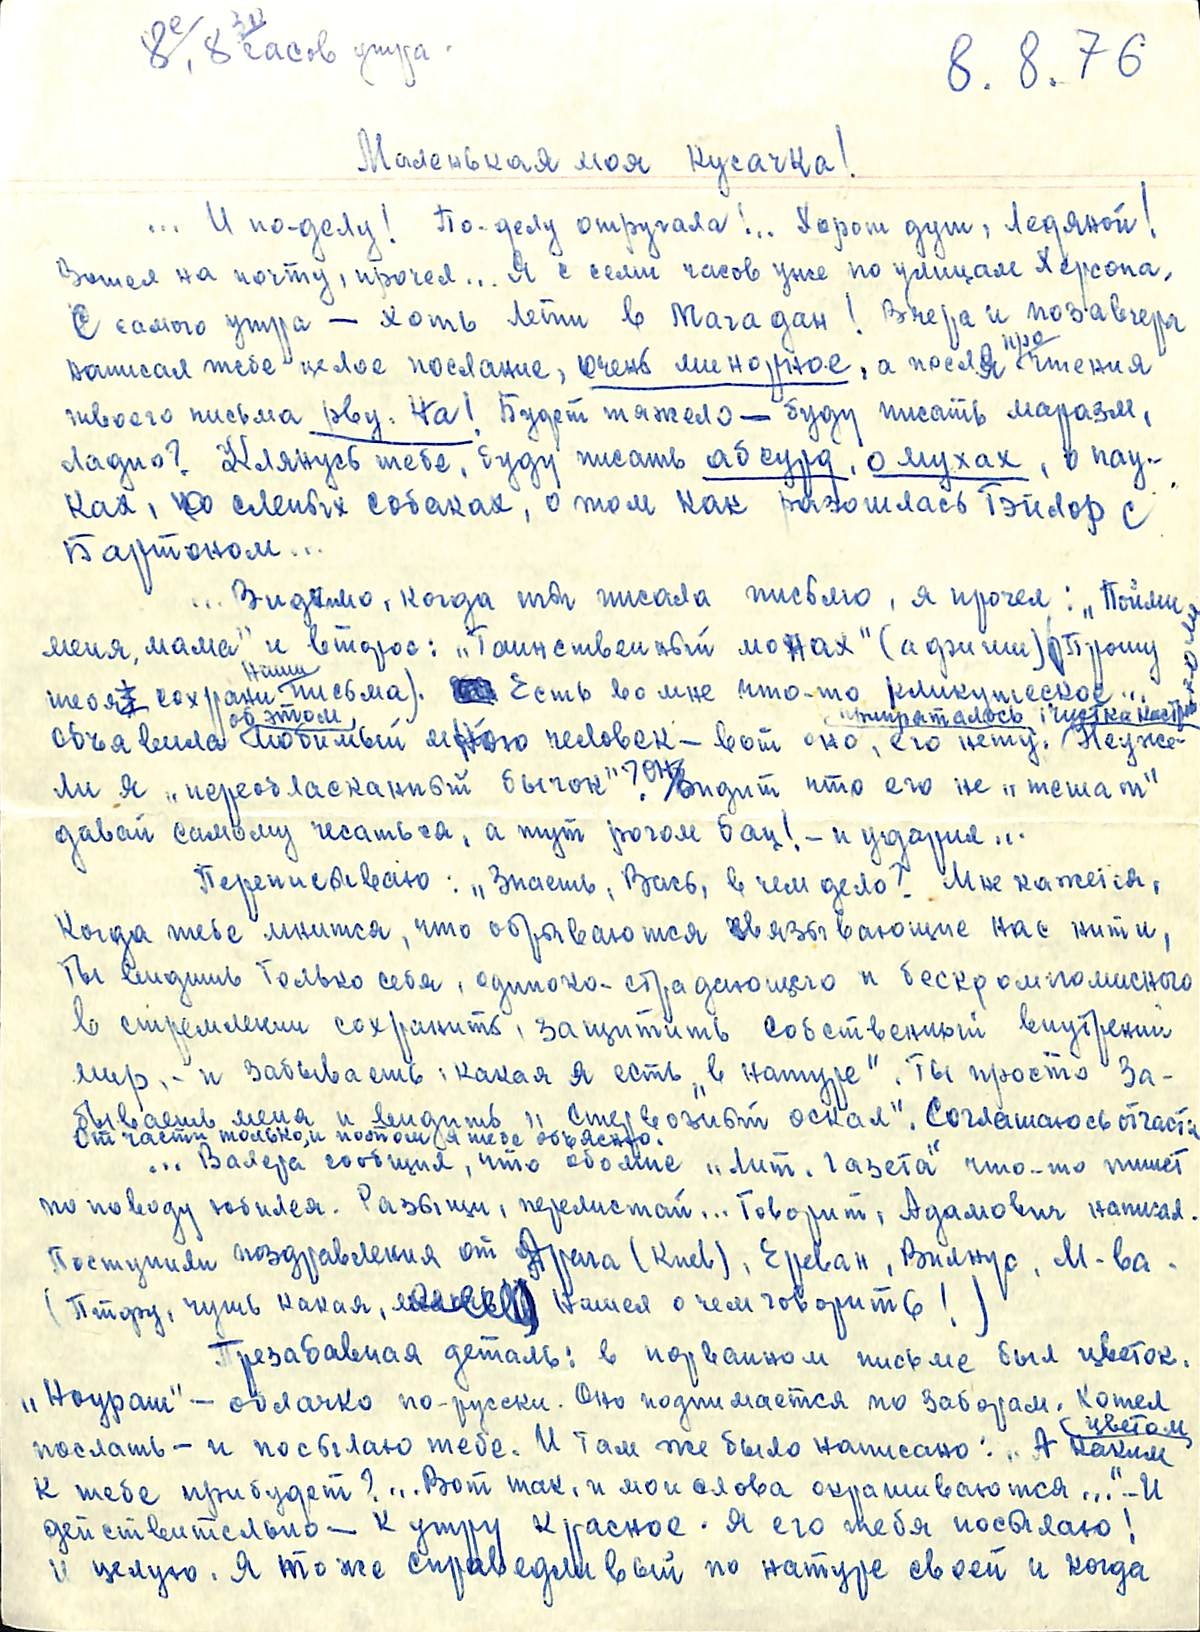 8е, 8 30 часов утра.
8. 8. 76
Маленькая моя кусачка!
... И по-делу! По-делу отругала!.. Хорош душ, Ледяной!
Зашел на почту, прочел... Я с семи часов уже по улицам Херсона.
С самого утра — хоть лети в Магадан! Вчера и позавчера
написал тебе целое послание, очень минорное, а после прочтения
твоего письма рву. На! Будет тяжело — буду писать маразм,
Ладно? Клянусь тебе, буду писать абсурд, о мухах, о пау-
ках, о слепых собаках, о том как разошлась Тэйлор с
Бартоном...
... Видимо, когда ты писала письмо, я прочел: „Пойми
меня, мама" и второе: „Таинственный монах" (афиши) (Прошу
тебя сохрани наши письма). Есть во мне что-то кликушеское...
объявила об этом любимый мною человек — вот оно, его нету.
Неуже-
ли я „переобласканный бычок"? Он видит что его не „чешат"
давай самому чесаться, а тут рогом бац! — и ударил...
Переписываю: „Знаешь, Вась, в чем дело? Мне кажется,
когда тебе мнится, что обрываются связывающие нас нити,
ты видишь только себя, одиноко-страдающего и бескромпомисного
в стремлении сохранить, защитить собственный внутрений
мир, — и забываешь, какая я есть „в натуре". Ты просто за-
бываешь меня и видишь „стервозный оскал". Соглашаюсь отчасти
Отчасти только, и потом я тебе объясню.
... Валера сообщил, что обо мне „Лит. газета" что-то пишет
по поводу юбилея. Разыщи, перелистай... Говорит, Адамович написал.
Поступили поздравления от Драча (Киев), Ереван, Вилнус, М-ва.
(Птфу, чушь какая, нашел о чем говорить!)
Презабавная деталь: в порванном письме был цветок.
„Ноураш" — облачко по-русски. Оно поднимается по заборам. Хотел
послать — и посылаю тебе. И там же было написано: „А каким цветом
к тебе прибудет?... Вот так, и мои слова окрашиваются..." — И
действительно — к утру красное. Я его тебя посылаю!
И целую. Я тоже справедливый по натуре своей и когда